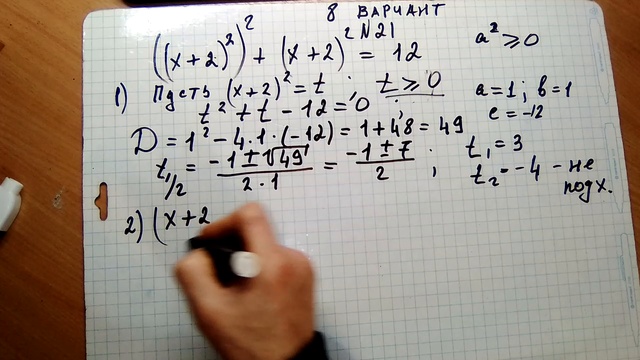 8 ВАРИАНТ
N21
((x+2)²)² + (x+2)² = 12
a² ≥ 0
1) Пусть (x+2)² = t ; t ≥ 0
a=1; b=1
t² + t − 12 = 0
c=−12
D = 1² − 4·1·(−12) = 1+48 = 49
t₁/₂ = (−1 ± √49)/(2·1) = (−1 ± 7)/2 ; t₁ = 3
t₂ = −4 − не
подх.
2) (x+2